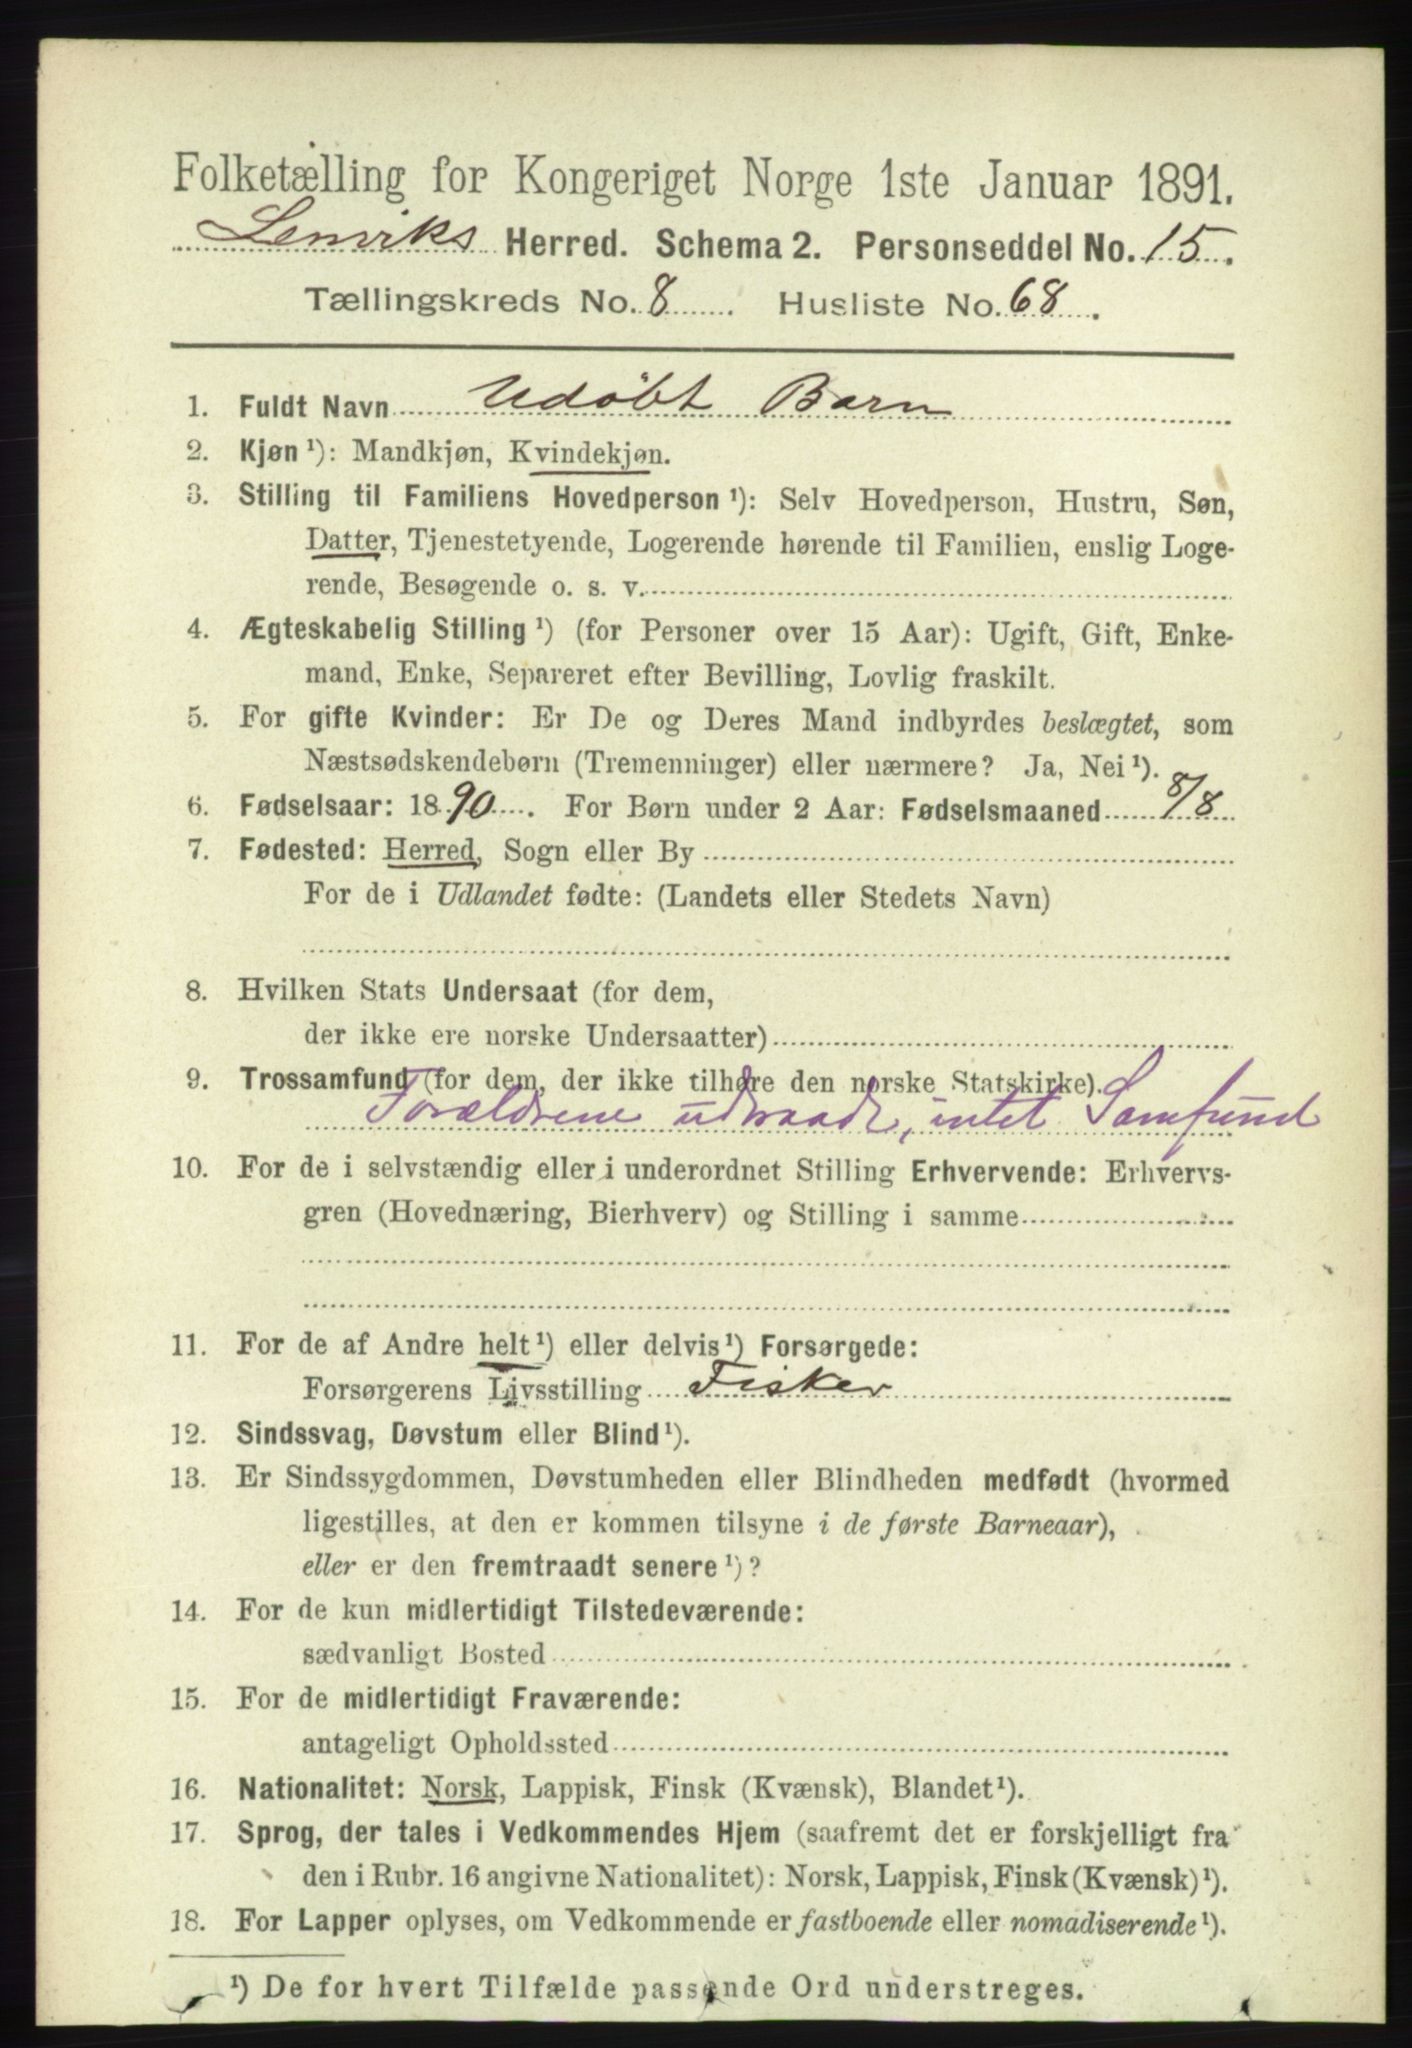 Folketælling for Kongeriget Norge 1ste Januar 1891.
Lenviks Herred. Schema 2. Personseddel No. 15.
Tællingskreds No. 8. Husliste No. 68.
1. Fuldt Navn Udøbt Barn
2. Kjøn ¹): Mandkjøn, Kvindekjøn.
3. Stilling til Familiens Hovedperson ¹): Selv Hovedperson, Hustru, Søn,
Datter, Tjenestetyende, Logerende hørende til Familien, enslig Loge-
rende, Besøgende o. s. v.
4. Ægteskabelig Stilling ¹) (for Personer over 15 Aar): Ugift, Gift, Enke-
mand, Enke, Separeret efter Bevilling, Lovlig fraskilt.
5. For gifte Kvinder: Er De og Deres Mand indbyrdes beslægtet, som
Næstsødskendebørn (Tremenninger) eller nærmere? Ja, Nei ¹).
6. Fødselsaar: 1890. For Børn under 2 Aar: Fødselsmaaned 8/8
7. Fødested: Herred, Sogn eller By
For de i Udlandet fødte: (Landets eller Stedets Navn)
8. Hvilken Stats Undersaat (for dem,
der ikke ere norske Undersaatter)
9. Trossamfund (for dem, der ikke tilhøre den norske Statskirke).
Forældrene udtraadt, intet Samfund
10. For de i selvstændig eller i underordnet Stilling Erhvervende: Erhvervs-
gren (Hovednæring, Bierhverv) og Stilling i samme
11. For de af Andre helt ¹) eller delvis ¹) Forsørgede:
Forsørgerens Livsstilling Fisker
12. Sindssvag, Døvstum eller Blind ¹).
13. Er Sindssygdommen, Døvstumheden eller Blindheden medfødt (hvormed
ligestilles, at den er kommen tilsyne i de første Barneaar),
eller er den fremtraadt senere ¹)?
14. For de kun midlertidigt Tilstedeværende:
sædvanligt Bosted
15. For de midlertidigt Fraværende:
antageligt Opholdssted
16. Nationalitet: Norsk, Lappisk, Finsk (Kvænsk), Blandet ¹).
17. Sprog, der tales i Vedkommendes Hjem (saafremt det er forskjelligt fra
den i Rubr. 16 angivne Nationalitet): Norsk, Lappisk, Finsk (Kvænsk) ¹).
18. For Lapper oplyses, om Vedkommende er fastboende eller nomadiserende ¹).
¹) De for hvert Tilfælde passende Ord understreges.